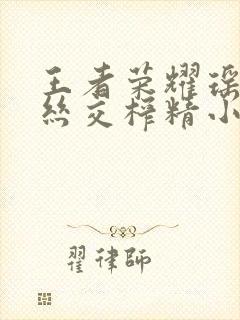 王者荣耀瑶
丝交榨精小
翟律师